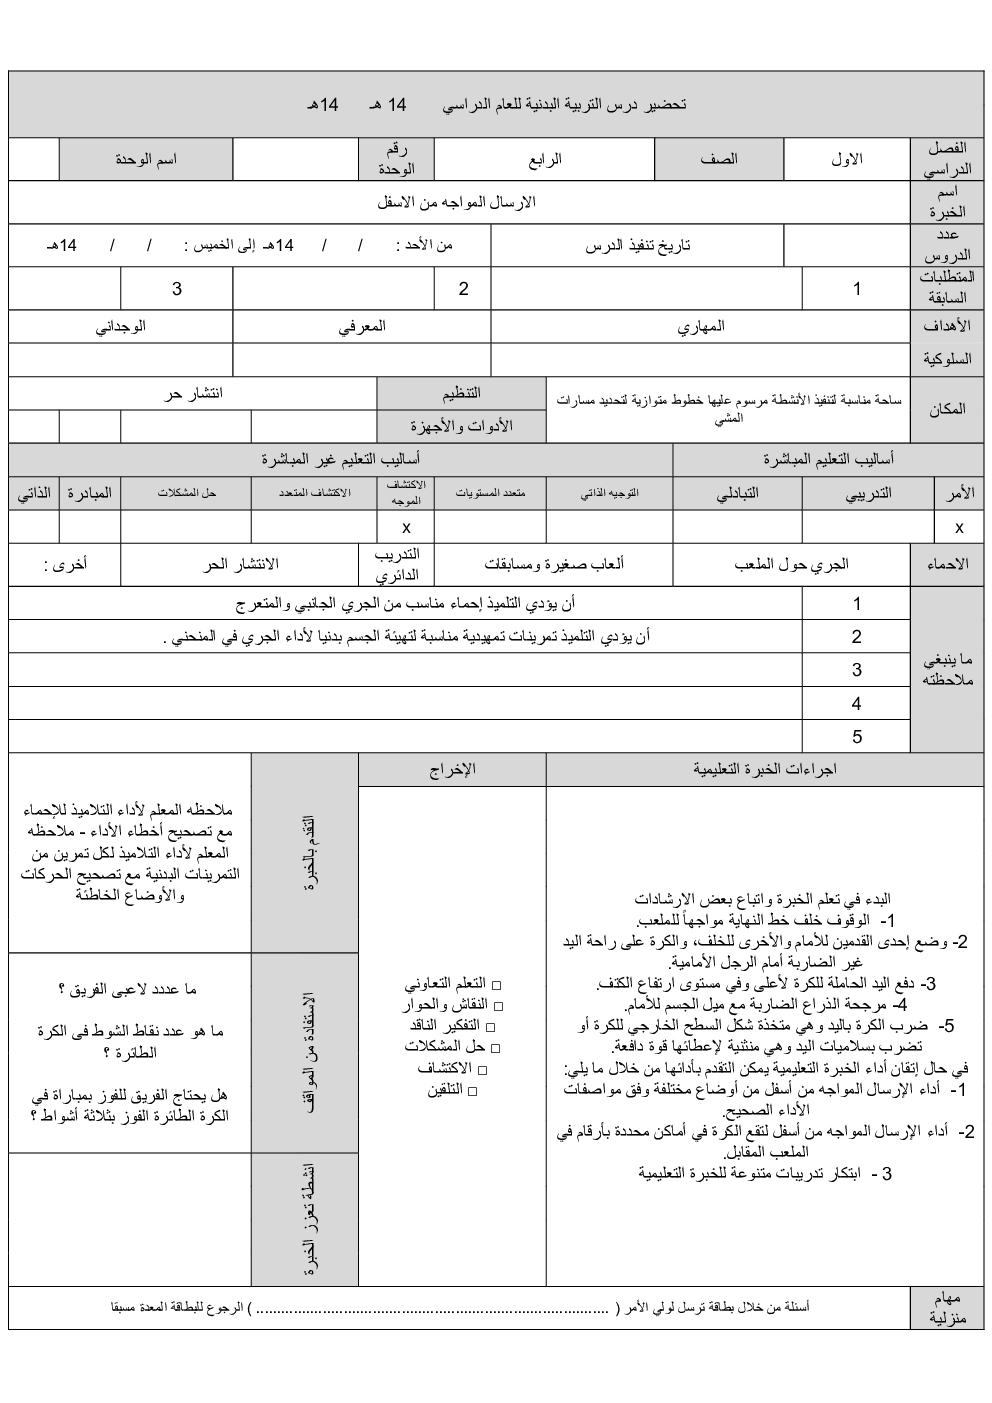 تحضير درس التربية البدنية للعام الدراسي 14 هـ 14هـ
الفصل الدراسي
الاول
الصف
الرابع
رقم الوحدة
اسم الوحدة
اسم الخبرة
الارسال المواجه من الاسفل
عدد الدروس
تاريخ تنفيذ الدرس
من الأحد : / / 14هـ إلى الخميس : / / 14هـ
المتطلبات السابقة
1
2
3
الأهداف السلوكية
المهاري
المعرفي
الوجداني
المكان
ساحة مناسبة لتنفيذ الأنشطة مرسوم عليها خطوط متوازية لتحديد مسارات
المشي
التنظيم
انتشار حر
الأدوات والأجهزة
أساليب التعليم المباشرة
أساليب التعليم غير المباشرة
الأمر
التدريبي
التبادلي
التوجيه الذاتي
متعدد المستويات
الاكتشاف الموجه
الاكتشاف المتعدد
حل المشكلات
المبادرة
الذاتي
x
x
الاحماء
الجري حول الملعب
ألعاب صغيرة ومسابقات
التدريب الدائري
الانتشار الحر
أخرى :
ما ينبغي ملاحظته
1
أن يؤدي التلميذ إحماء مناسب من الجري الجانبي والمتعرج
2
أن يؤدي التلميذ تمرينات تمهيدية مناسبة لتهيئة الجسم بدنيا لأداء الجري في المنحني .
3
4
5
اجراءات الخبرة التعليمية
الإخراج
البدء في تعلم الخبرة واتباع بعض الإرشادات
1- الوقوف خلف خط النهاية مواجهاً للملعب.
2- وضع إحدى القدمين للأمام والأخرى للخلف، والكرة على راحة اليد
غير الضاربة أمام الرجل الأمامية.
3- دفع اليد الحاملة للكرة لأعلى وفي مستوى ارتفاع الكتف.
4- مرجحة الذراع الضاربة مع ميل الجسم للأمام.
5- ضرب الكرة باليد وهي متخذة شكل السطح الخارجي للكرة أو
تضرب بسلاميات اليد وهي منثنية لإعطائها قوة دافعة.
في حال إتقان أداء الخبرة التعليمية يمكن التقدم بأدائها من خلال ما يلي:
1- أداء الإرسال المواجه من أسفل من أوضاع مختلفة وفق مواصفات
الأداء الصحيح.
2- أداء الإرسال المواجه من أسفل لتقع الكرة في أماكن محددة بأرقام في
الملعب المقابل.
3 - ابتكار تدريبات متنوعة للخبرة التعليمية
□ التعلم التعاوني
□ النقاش والحوار
□ التفكير الناقد
□ حل المشكلات
□ الاكتشاف
□ التلقين
التقدم بالخبرة
ملاحظه المعلم لأداء التلاميذ للإحماء
مع تصحيح أخطاء الأداء - ملاحظه
المعلم لأداء التلاميذ لكل تمرين من
التمرينات البدنية مع تصحيح الحركات
والأوضاع الخاطئة
الاستفادة من المواقف
ما عددد لاعبى الفريق ؟
ما هو عدد نقاط الشوط فى الكرة
الطائرة ؟
هل يحتاج الفريق للفوز بمباراة في
الكرة الطائرة الفوز بثلاثة أشواط ؟
انشطة تعزز الخبرة
مهام منزلية
أسئلة من خلال بطاقة ترسل لولي الأمر ( .................................................................................... ) الرجوع للبطاقة المعدة مسبقا